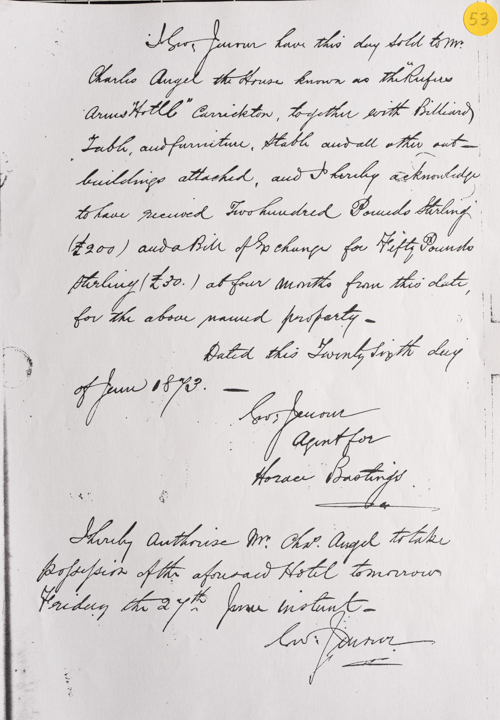 53
I Geo, Jenour have this day Sold to Mr.
Charles Angel the House known as the "Rufus
Arms Hotel" Carrickton, together with Billiard
Table, and furniture, Stable and all other out-
buildings attached, and I hereby acknowledge
to have received Two hundred Pounds Sterling
(£200) and a Bill of Exchange for Fifty Pounds
Sterling (£50.) at four months from this date,
for the above named property-
Dated this Twenty Sixth day
of June 1873. —
Geo; Jenour
Agent for
Horace Bastings
I hereby Authorise Mr. Chas. Angel to take
possession of the aforesaid Hotel tomorrow
Friday the 27th June instant-
Geo: Jenour